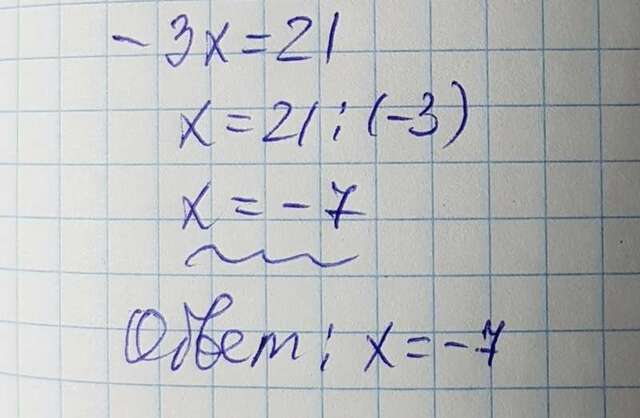 - 3x = 21
x = 21 : (-3)
x = - 7
Ответ : x = -7